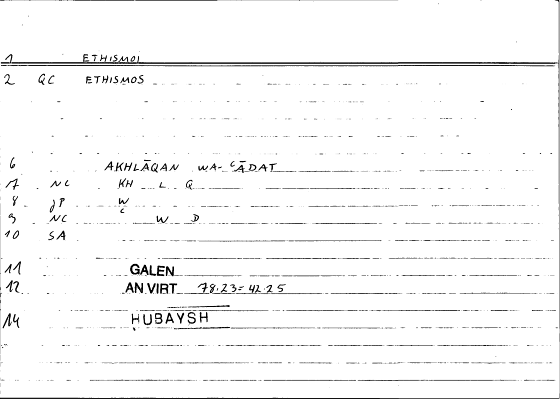 1 ETHISMOI
2 QC ETHISMOS
6 AKHLĀQAN WA-ʿĀDAT
7 NC KH L Q
8 JP W
9 NC ʿ W D
10 SA
11 GALEN
12 AN VIRT 78.23=42.25
14 ḤUBAYSH